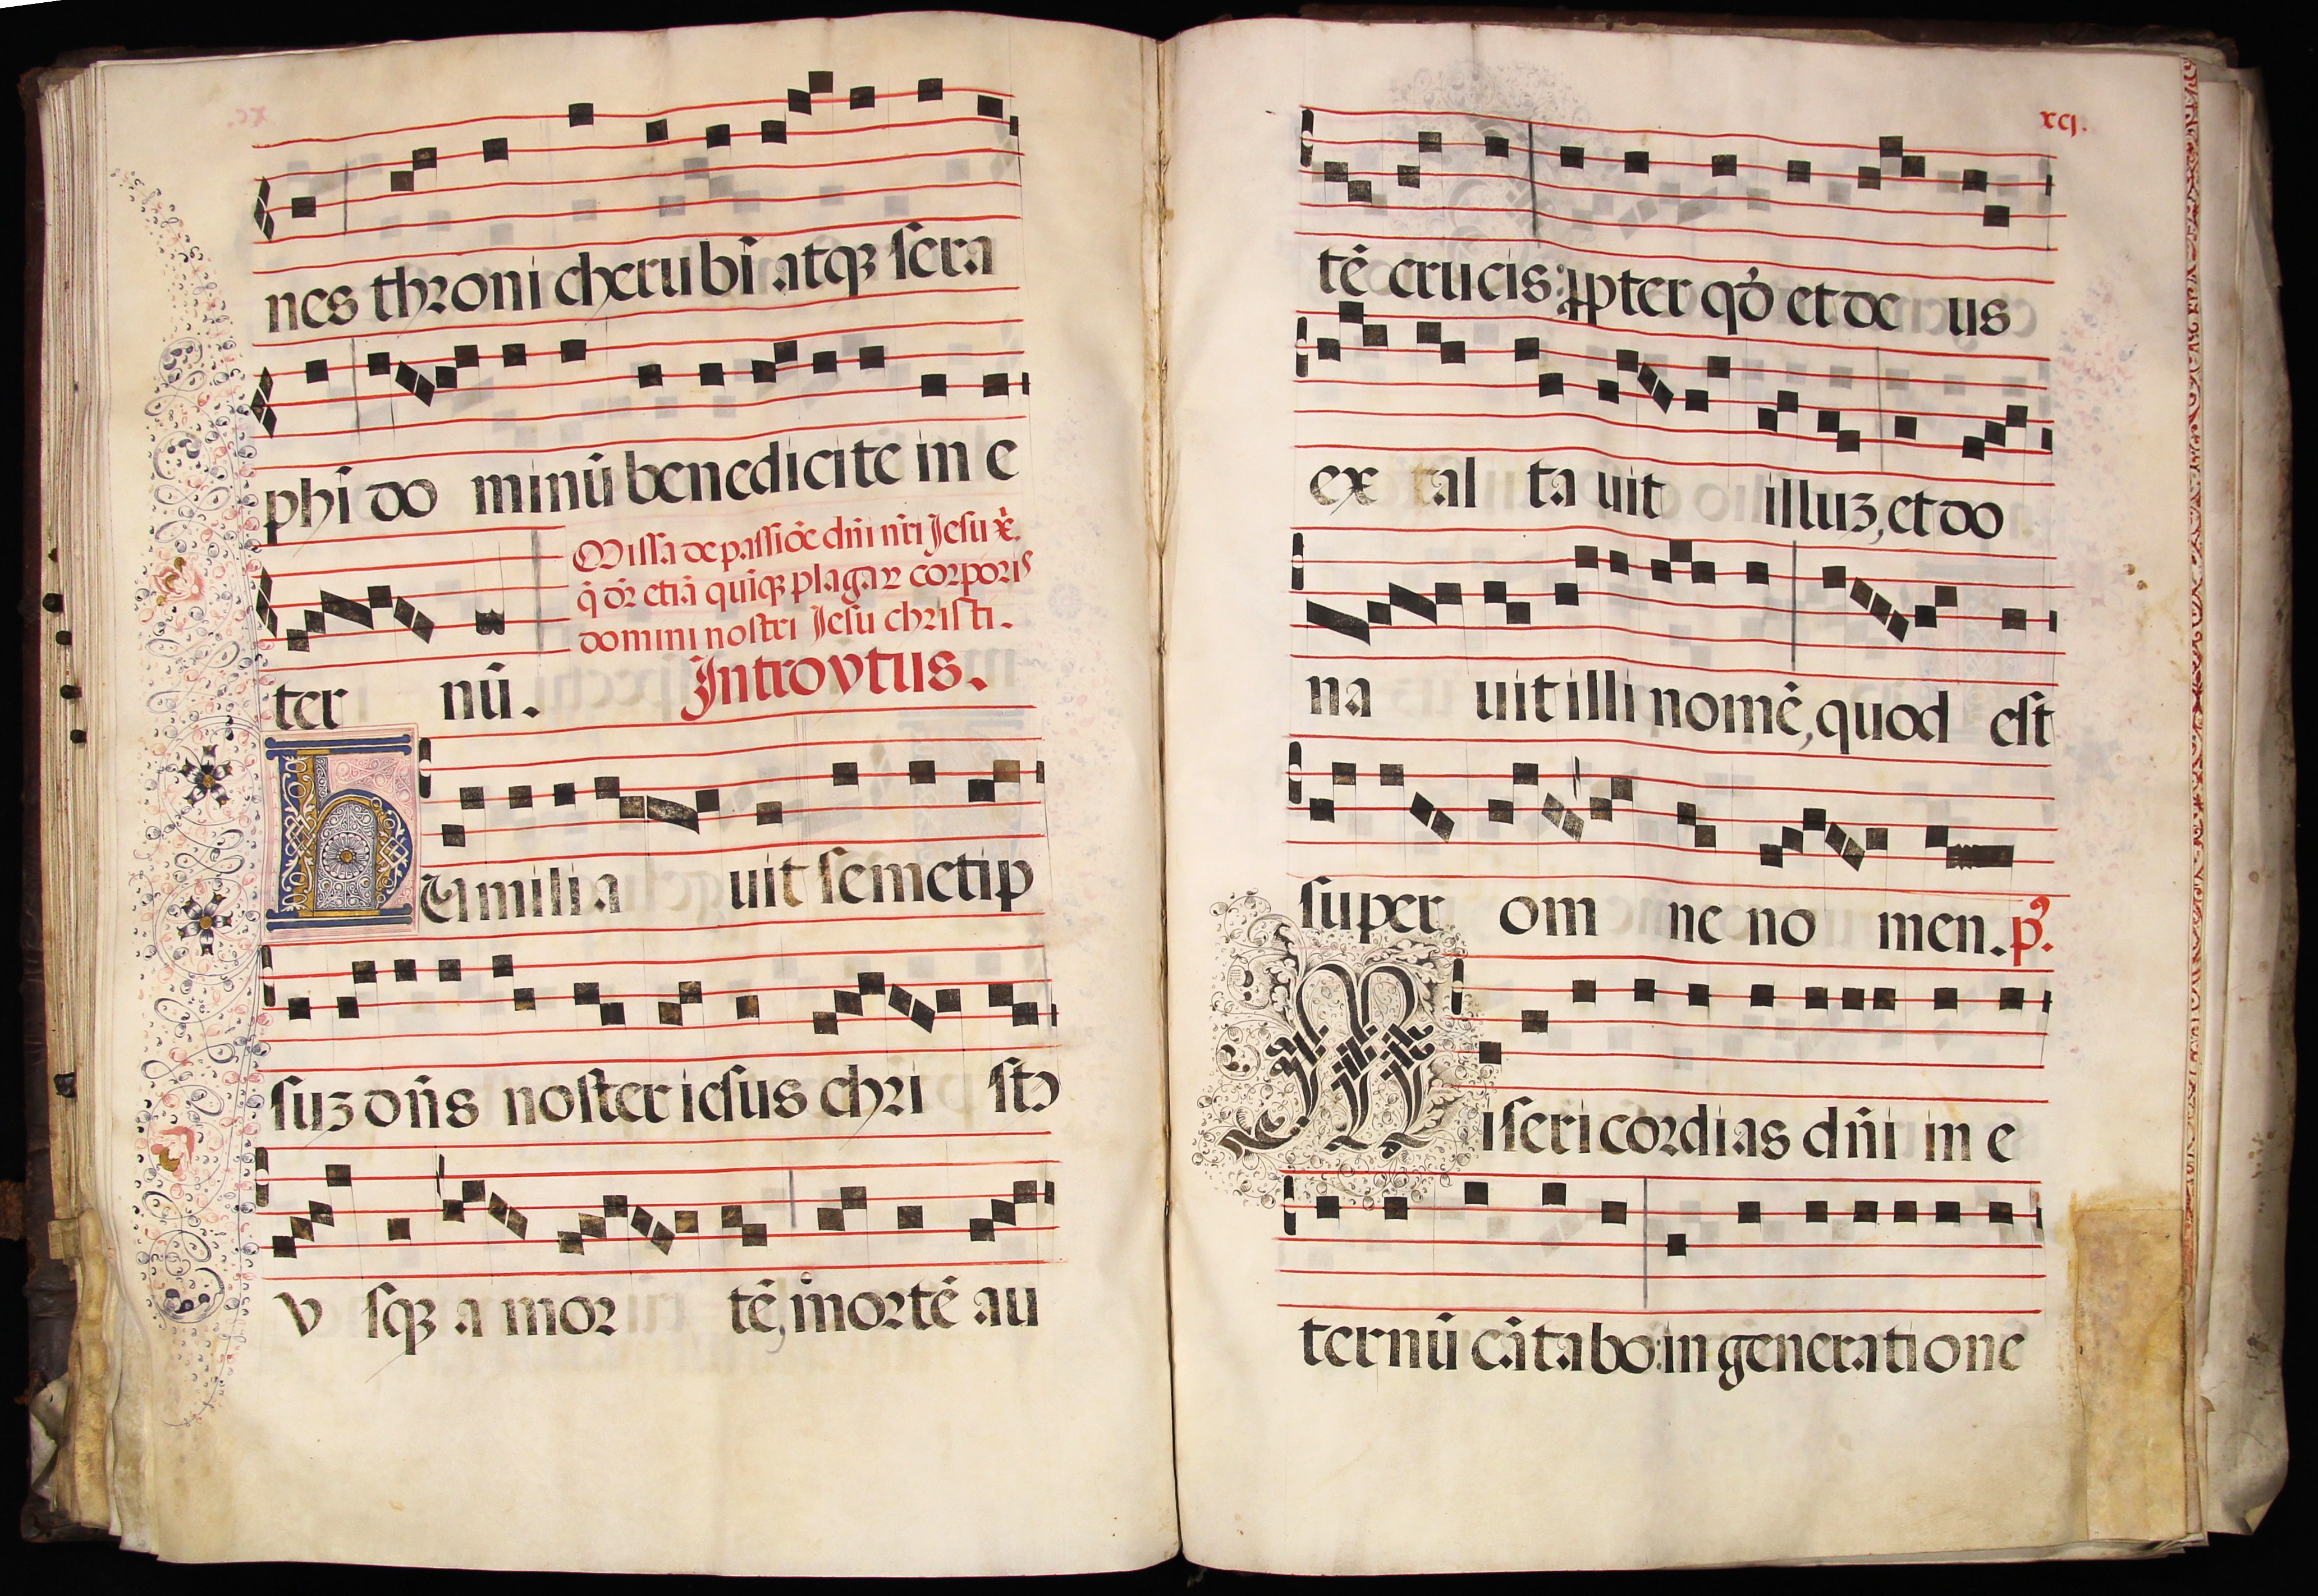 nes throni cherubī atqꝫ sera
phī do minū benedicite in e
Missa de passiōe dñi nr̄i Jesu xp̄.
q̄ dr̄ etiā quīqꝫ plagaꝝ corporis
domini nostri Jesu christi.
ter nū. Introytus.
Humilia uit semetip
suꝫ dñs noster iesus chri stꝰ
v sqꝫ a mor tē, mortē au
xcj.
tē crucis: ꝓpter qđ et de us
ex tal ta uit illuꝫ, et do
na uit illi nomē, quod est
super om ne no men. p̄.
Misericordias dñi in e
ternū cātabo: in generatione